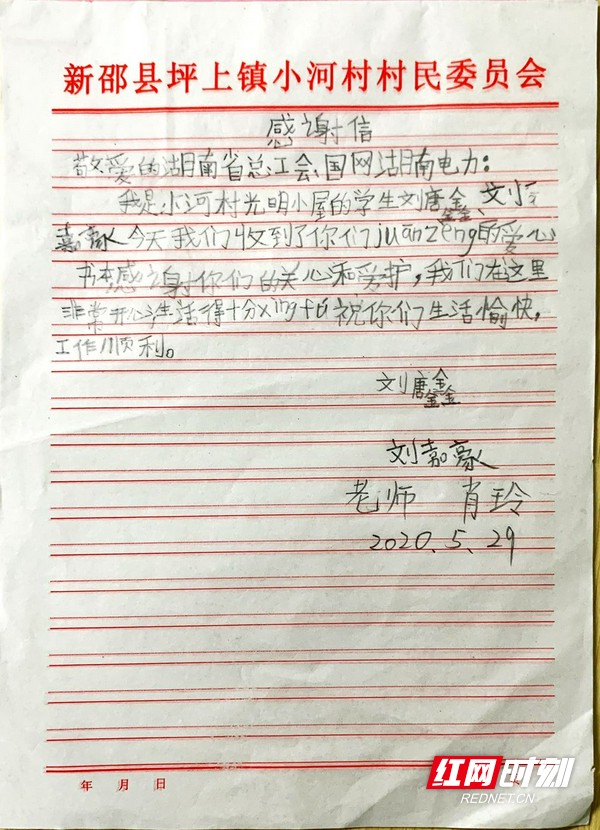 新邵县坪上镇小河村村民委员会
感谢信
敬爱的湖南省总工会、国网湖南电力:
我是小河村光明小屋的学生刘唐鑫、刘
嘉豪今天我们收到了你们juanzeng的爱心
书本感谢你们的关心和爱护,我们在这里
非常开心生活得十分xingfu祝你们生活愉快,
工作顺利。
刘唐鑫
刘嘉豪
老师 肖玲
2020.5.29
年 月 日
红网时刻
REDNET.CN